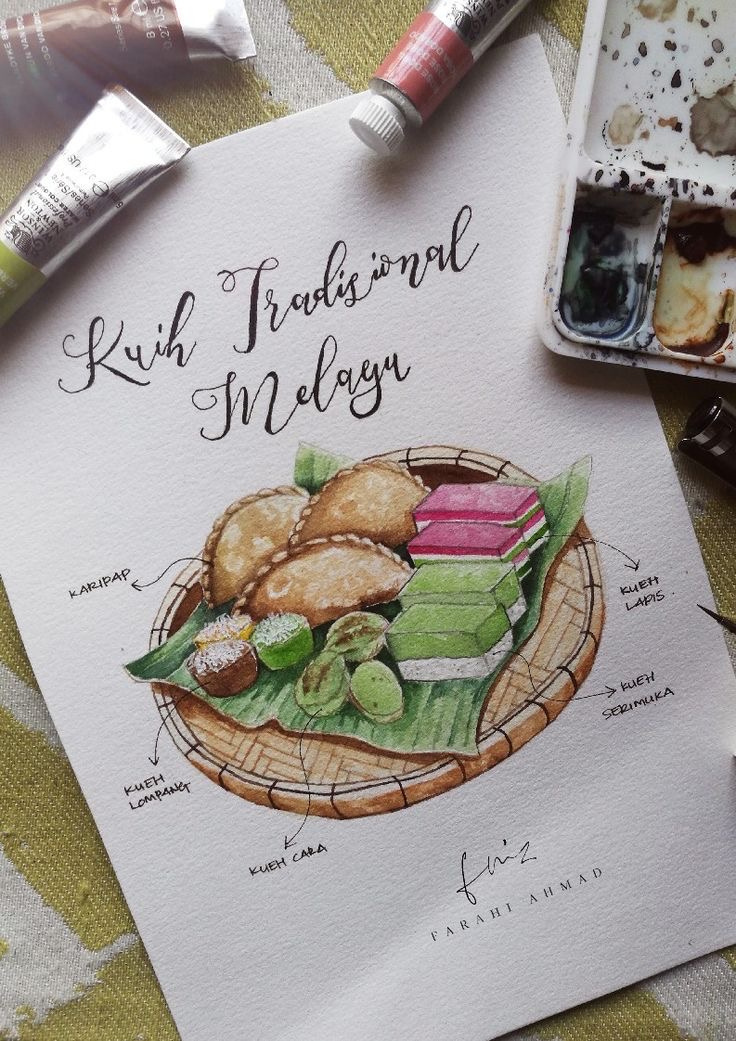 WINSOR
& NEWTON
Kuih Tradisional
Melayu
KARIPAP
KUEH
LAPIS.
KUEH
SERIMUKA
KUEH
LOMPANG
KUEH CARA
FARAHI AHMAD